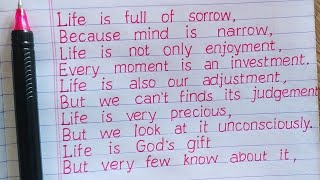 Life is full of sorrow,
Because mind is narrow,
Life is not only enjoyment,
Every moment is an investment.
Life is also our adjustment,
But we can't finds its judgement
Life is very precious,
But we look at it unconsciously.
Life is God's gift
But very few know about it,